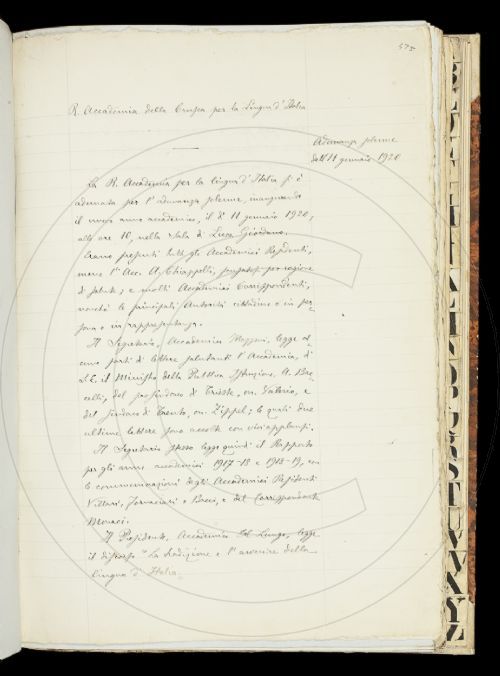 575
R. Accademia della Crusca per la Lingua d'Italia
Adunanza solenne
dell'11 gennaio 1920
La R. Accademia per la lingua d'Italia si è
adunata per l'adunanza solenne, inaugurando
il nuovo anno accademico, il dì 11 gennaio 1920,
alle ore 10, nella Sala di Luca Giordano.
Erano presenti tutti gli Accademici Residenti,
meno l'Acc. A. Chiappelli, scusatosi per ragione
di salute; e molti Accademici Corrispondenti,
nonchè le principali Autorità cittadine o in per-
sona o in rappresentanza.
Il Segretario, Accademico Mazzoni, legge al-
cune parti di lettere salutanti l'Accademia, di
S. E. il Ministro della Pubblica Istruzione, A. Bac-
celli, del prosindaco di Trieste, on. Valerio, e
del Sindaco di Trento, on. Zippel; le quali due
ultime lettere sono accolte con vivi applausi.
Il Segretario stesso legge quindi il Rapporto
per gli anni accademici 1917-18 e 1918-19, con
le commemorazioni degli Accademici Residenti
Villari, Fornaciari e Bacci, e del Corrispondente
Monaci.
Il Presidente, Accademico Del Lungo, legge
il discorso "La tradizione e l'avvenire della
lingua d'Italia.
S T U V W X Y Z